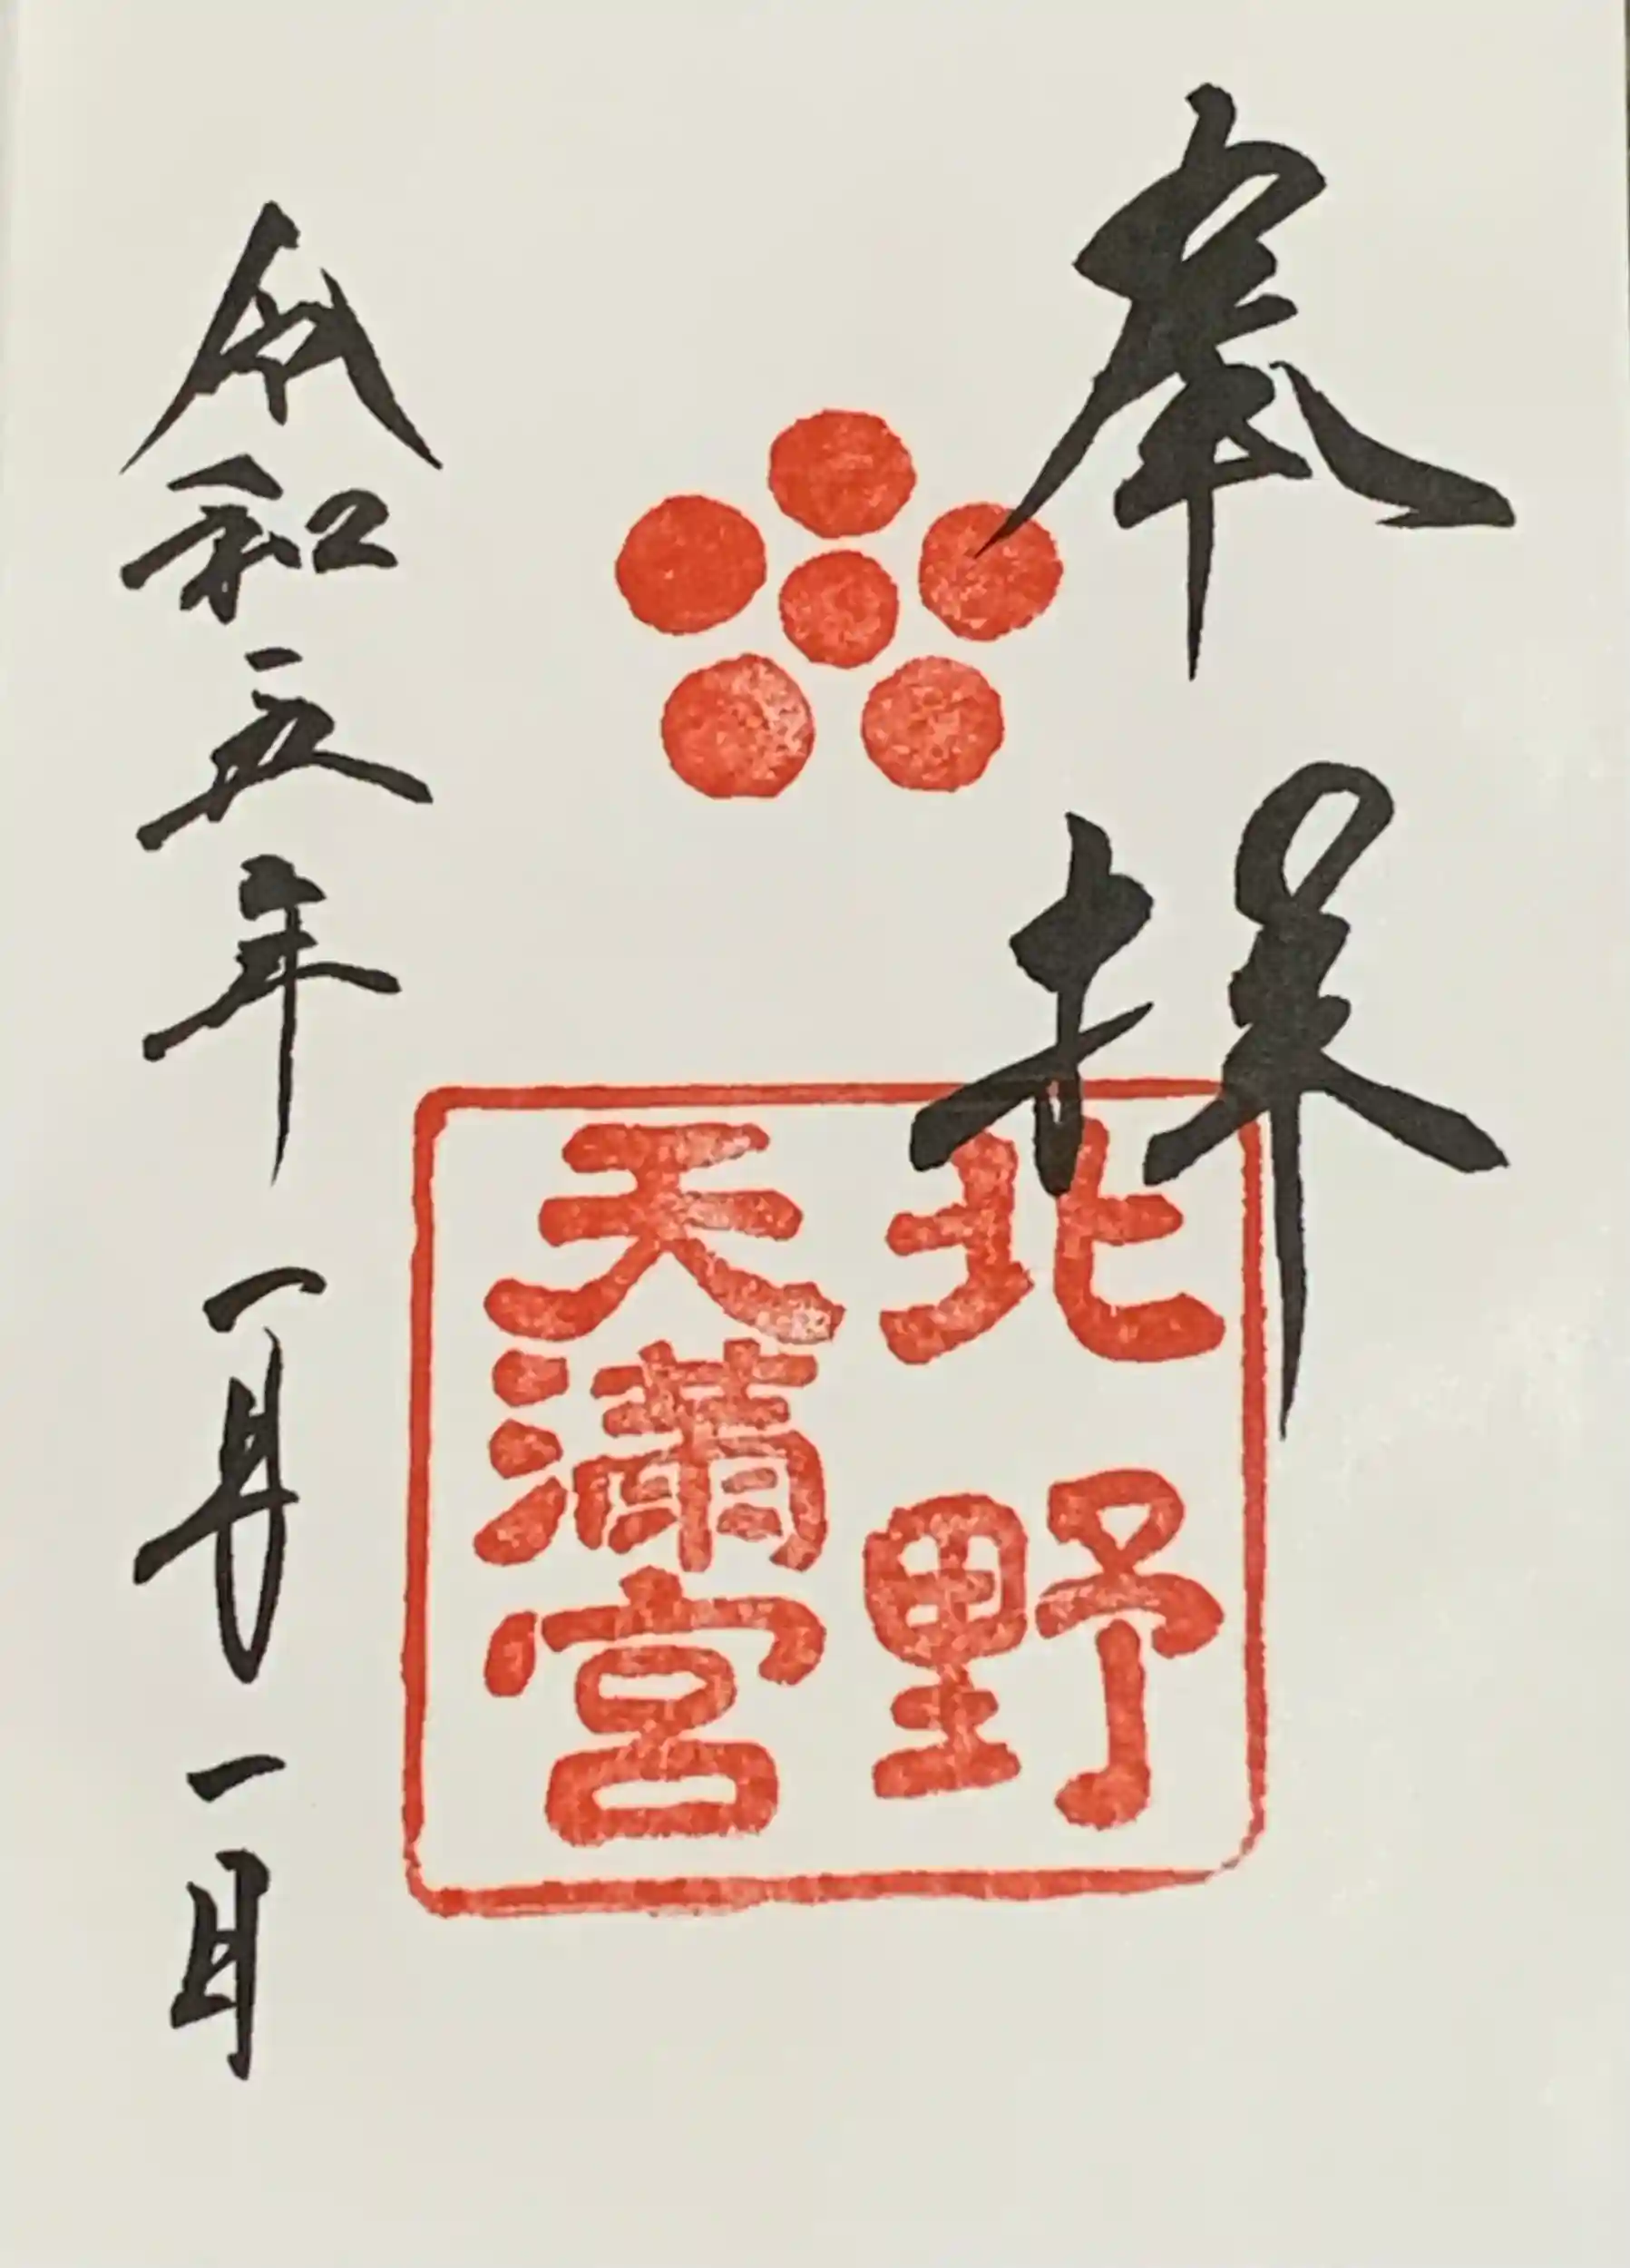 奉拝
北野
天満宮
令和五年一月一日